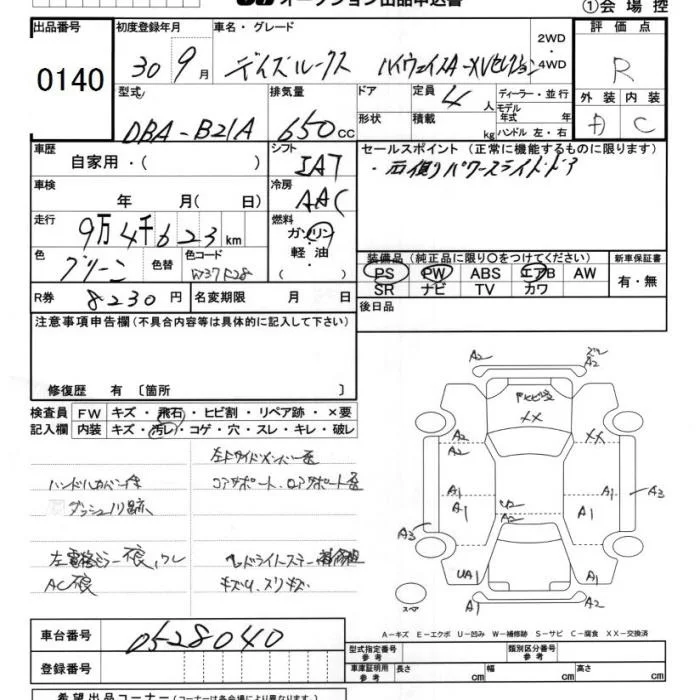 オークション出品申込書
①会場控
出品番号 初度登録年月 車名・グレード 評価点
0140 30 9月 デイズルークス ハイウェイスターXVセレクション 2WD・4WD R
型式 排気量 ドア 定員 4人 ディーラー・並行 外装 内装
DBA-B21A 650cc 形状 積載 kg モデル年式 年 ハンドル 左・右 C
車歴 シフト セールスポイント (正常に機能するものに限ります)
自家用・( ) IAT ・右側パワースライドドア
車検 冷房
年 月( 日) AAC
走行 燃料
9万4千623km ガソリン・軽油・( )
色 色替 色コード 装備品 (純正品に限り○をつけてください) 新車保証書
グリーン PS PW ABS エアB AW 有・無
SR ナビ TV カワ
R券 8230円 名変期限 月 日 後日品
注意事項申告欄(不具合内容等は具体的に記入して下さい)
修復歴 有〔箇所 〕
検査員 FW キズ・飛石・ヒビ割・リペア跡・×要
記入欄 内装 キズ・汚レ・コゲ・穴・スレ・キレ・破レ
左サイドメンバー
コアサポート、ロアサポート
ダッシュノリ跡
左電格ミラー不良、ワレ
AC不良
ヘッドライトステー
キズ、スリキズ
A2 A2
XX
A2 A2 XX
A1 A1 U2 A2 A1 A1 A3
A3
UA1 A1
スペア A1 A2
A−キズ E−エクボ U−凹み W−補修跡 S−サビ C−腐食 XX−交換済
車台番号 0528040
型式指定番号 参考 類別区分番号 参考
登録番号 車庫証明用 参考 長さ cm 幅 cm 高さ cm
希望出品コーナー(コーナーは各会場により異なります。)